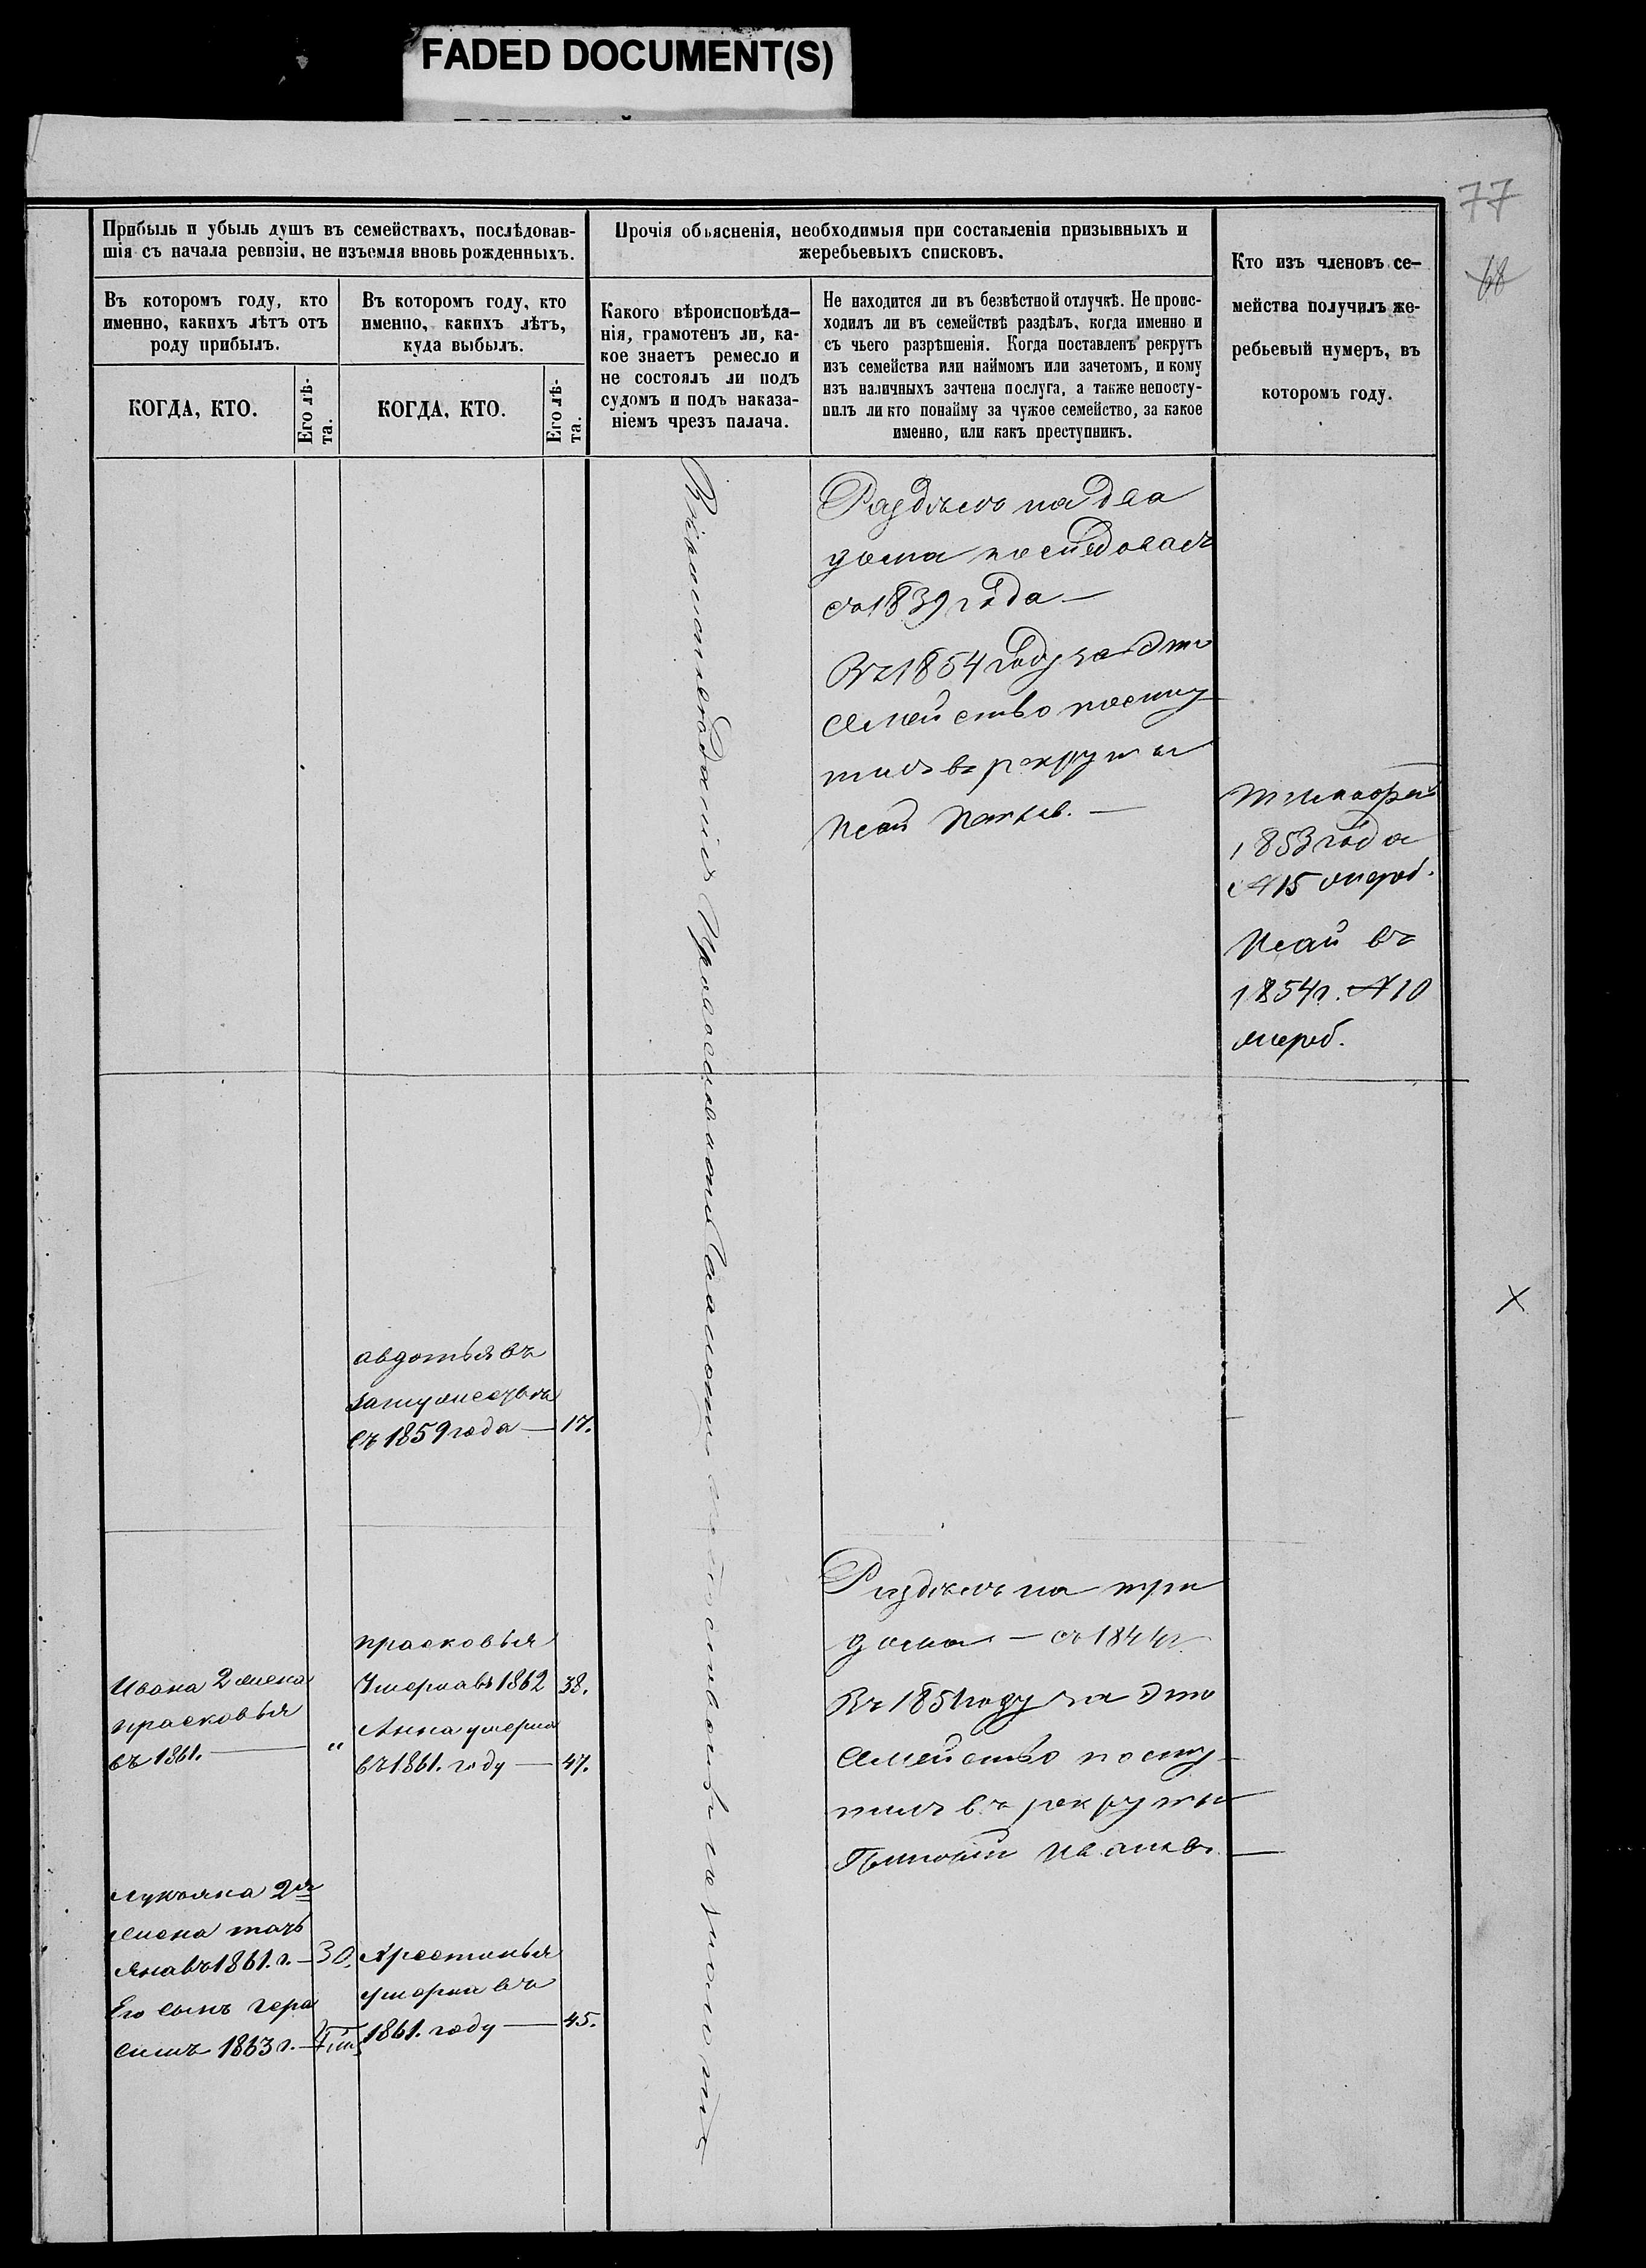 FADED DOCUMENT(S)
77
68
Прибыль и убыль душъ въ семействахъ, послѣдовав-
шія съ начала ревизіи, не изъемля вновь рожденныхъ.
Въ которомъ году, кто
именно, какихъ лѣтъ отъ
роду прибылъ.
КОГДА, КТО.
Его лѣ-
та.
Въ которомъ году, кто
именно, какихъ лѣтъ,
куда выбылъ.
КОГДА, КТО.
Его лѣ-
та.
Прочія объясненія, необходимыя при составленіи призывныхъ и
жеребьевыхъ списковъ.
Какого вѣроисповѣда-
нія, грамотенъ ли, ка-
кое знаетъ ремесло и
не состоялъ ли подъ
судомъ и подъ наказа-
ніемъ чрезъ палача.
Не находится ли въ безвѣстной отлучкѣ. Не проис-
ходилъ ли въ семействѣ раздѣлъ, когда именно и
съ чьего разрѣшенія. Когда поставленъ рекрутъ
изъ семейства или наймомъ или зачетомъ, и кому
изъ наличныхъ зачтена послуга, а также непосту-
пилъ ли кто понайму за чужое семейство, за какое
именно, или какъ преступникъ.
Кто изъ членовъ се-
мейства получилъ же-
ребьевый нумеръ, въ
которомъ году.
Раздѣлъ на два
дома последовалъ
съ 1839 года —
Въ 1854 году за это
семейство посту-
пилъ въ рекруты
Исай —
1853 года
№ 15 жереб.
Исай въ
1854 г. № 10
жереб.
авдотья въ
замужествѣ
съ 1859 года — 17.
Ивана 2 жена
прасковья
въ 1861. — "
прасковья
Умерла въ 1862 38.
Анна умерла
въ 1861. году — 47.
Раздѣлъ на три
дома — съ 1844 г
Въ 1851 году за это
семейство посту-
пилъ въ рекруты
Ивановъ —
Лукьяна 2я
жена тать
яна въ 1861. г. — 30.
Его сынъ гера
симъ 1863 г. —
Хрестинья
умерла въ
1861. году — 45.
Х